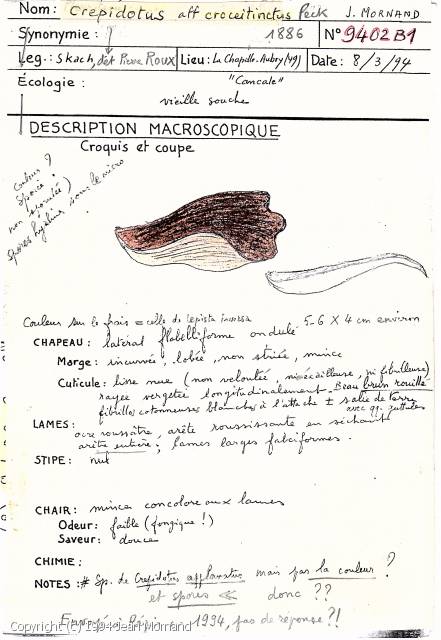 Nom: Crepidotus aff croceitinctus Peck J. MORNAND
Synonymie: 1886 N° 9402B1
Leg.: Skach, dét Pierre Roux Lieu: La Chapelle-Aubry (49) Date: 8/3/94
Écologie: "Cancale"
vieille souche
DESCRIPTION MACROSCOPIQUE
Croquis et coupe
Couleur ?
sporée !
non sporulée)
spores hyalines sous le micro
Couleur sur le frais = celle de lepista inversa
5-6 X 4 cm environ
CHAPEAU: latéral flabelliforme ondulé
Marge: incurvée, lobée, non striée, mince
Cuticule: line nue (non veloutée, ni écailleuse, ni fibrilleuse)
rayée vergetée longitudinalement. Beau brun rouillé
fibrilles cotonneuses blanches à l'attache ± salie de terre
avec qq. guttules
LAMES: ocre roussâtre, arête roussissante en séchant
arête entière; lames larges falciformes.
STIPE: nul
CHAIR: mince concolore aux lames
Odeur: faible (fongique!)
Saveur: douce
CHIMIE:
NOTES: # Sp. de Crepidotus applanatus mais pas la couleur ?
et spores << donc ??
Envoyé à 1994, pas de réponse ?!
Copyright (c) 1994 Jean Mornand